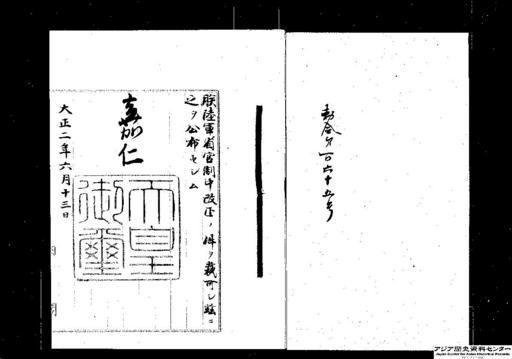 勅令第百六十五号
朕陸軍省官制中改正ノ件ヲ裁可シ玆ニ
之ヲ公布セシム
嘉仁
天皇
御璽
大正二年六月十三日
アジア歴史資料センター
Japan Center for Asian Historical Records